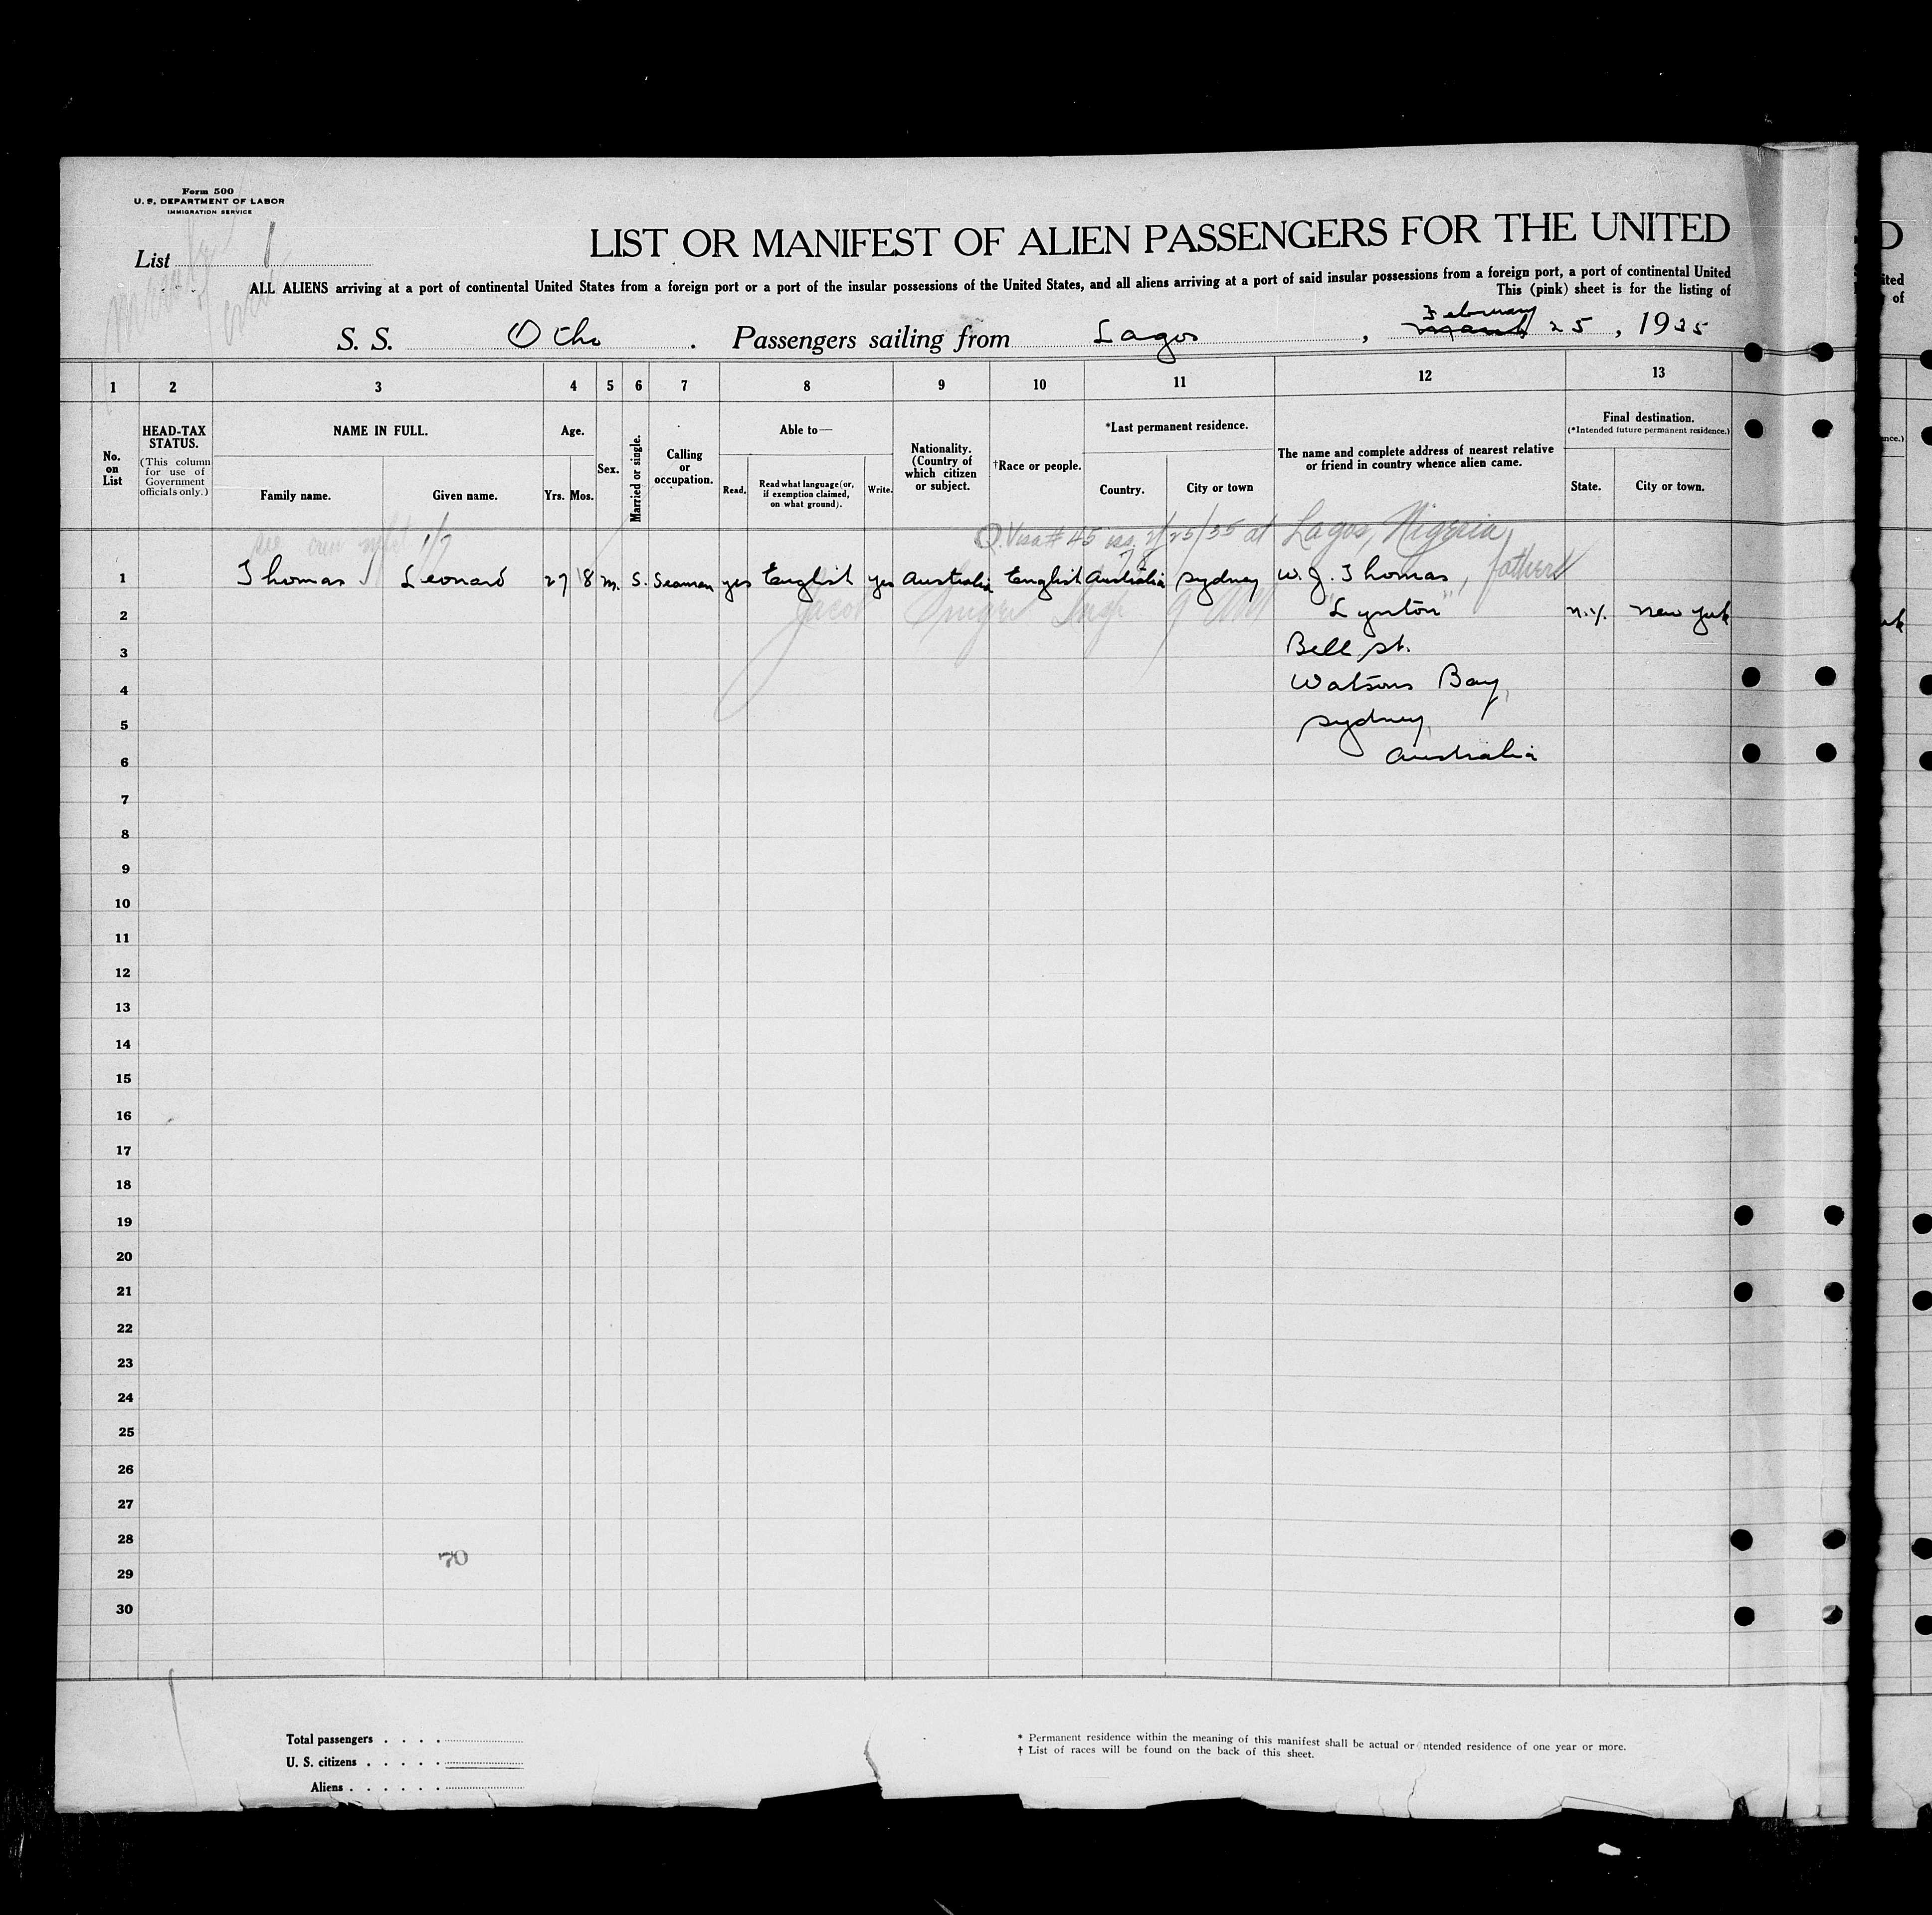 Form 500
U. S. DEPARTMENT OF LABOR
IMMIGRATION SERVICE
List 1
LIST OR MANIFEST OF ALIEN PASSENGERS FOR THE UNITED
ALL ALIENS arriving at a port of continental United States from a foreign port or a port of the insular possessions of the United States, and all aliens arriving at a port of said insular possessions from a foreign port, a port of continental United
This (pink) sheet is for the listing of
S. S. Otho . Passengers sailing from Lagos , March February 25 , 1935
1 2 3 4 5 6 7 8 9 10 11 12 13
No. on List
HEAD-TAX STATUS.
(This column for use of Government officials only.)
NAME IN FULL.
Family name. Given name.
Age.
Yrs. Mos.
Sex.
Married or single.
Calling or occupation.
Able to—
Read. Read what language (or, if exemption claimed, on what ground). Write.
Nationality. (Country of which citizen or subject.
†Race or people.
*Last permanent residence.
Country. City or town
The name and complete address of nearest relative or friend in country whence alien came.
Final destination.
(*Intended future permanent residence.)
State. City or town.
1/7
Q. Visa # 45 iss. 2/25/35 at Lagos, Nigeria
1 Thomas Leonard 27 8 m. S. Seaman yes English yes Australia English Australia Sydney W. J. Thomas, father
2 "Lynton" N.Y. New York
3 Bell St.
4 Watsons Bay,
5 Sydney,
6 Australia
7
8
9
10
11
12
13
14
15
16
17
18
19
20
21
22
23
24
25
26
27
28
70
29
30
Total passengers
U. S. citizens
Aliens
* Permanent residence within the meaning of this manifest shall be actual or intended residence of one year or more.
† List of races will be found on the back of this sheet.